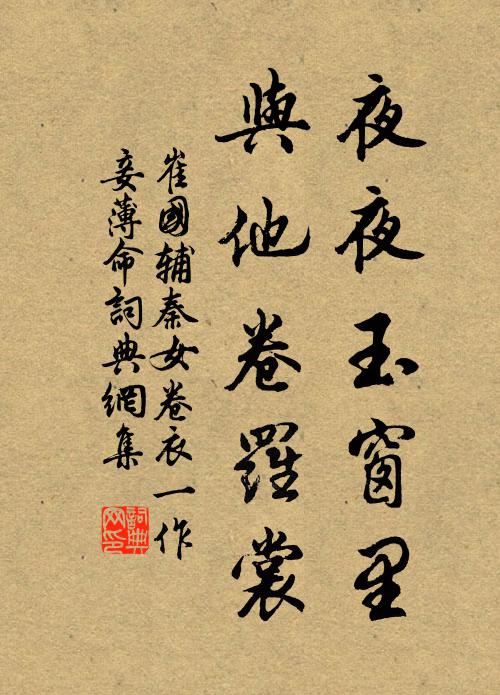 夜夜玉窗里
與他卷羅裳
崔國辅秦女卷衣一作
妾薄命詞典網集
詞典網印